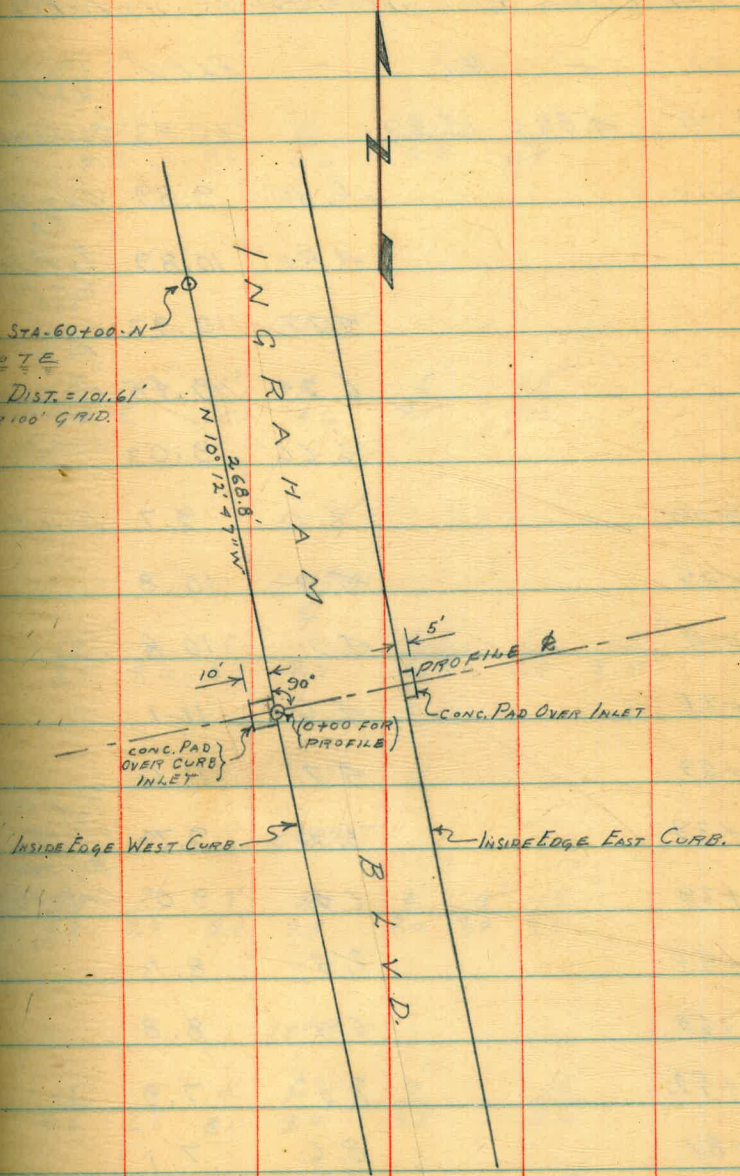 N
INGRAHAM
STA-60+00-N
TE
DIST. = 101.61'
100' GRID.
268.8'
N 10° 12' 47" W
5'
PROFILE ℄
10'
90°
CONC. PAD OVER INLET
(0+00 FOR
PROFILE)
CONC. PAD
OVER CURB
INLET
INSIDE EDGE WEST CURB
INSIDE EDGE EAST CURB.
BLVD.